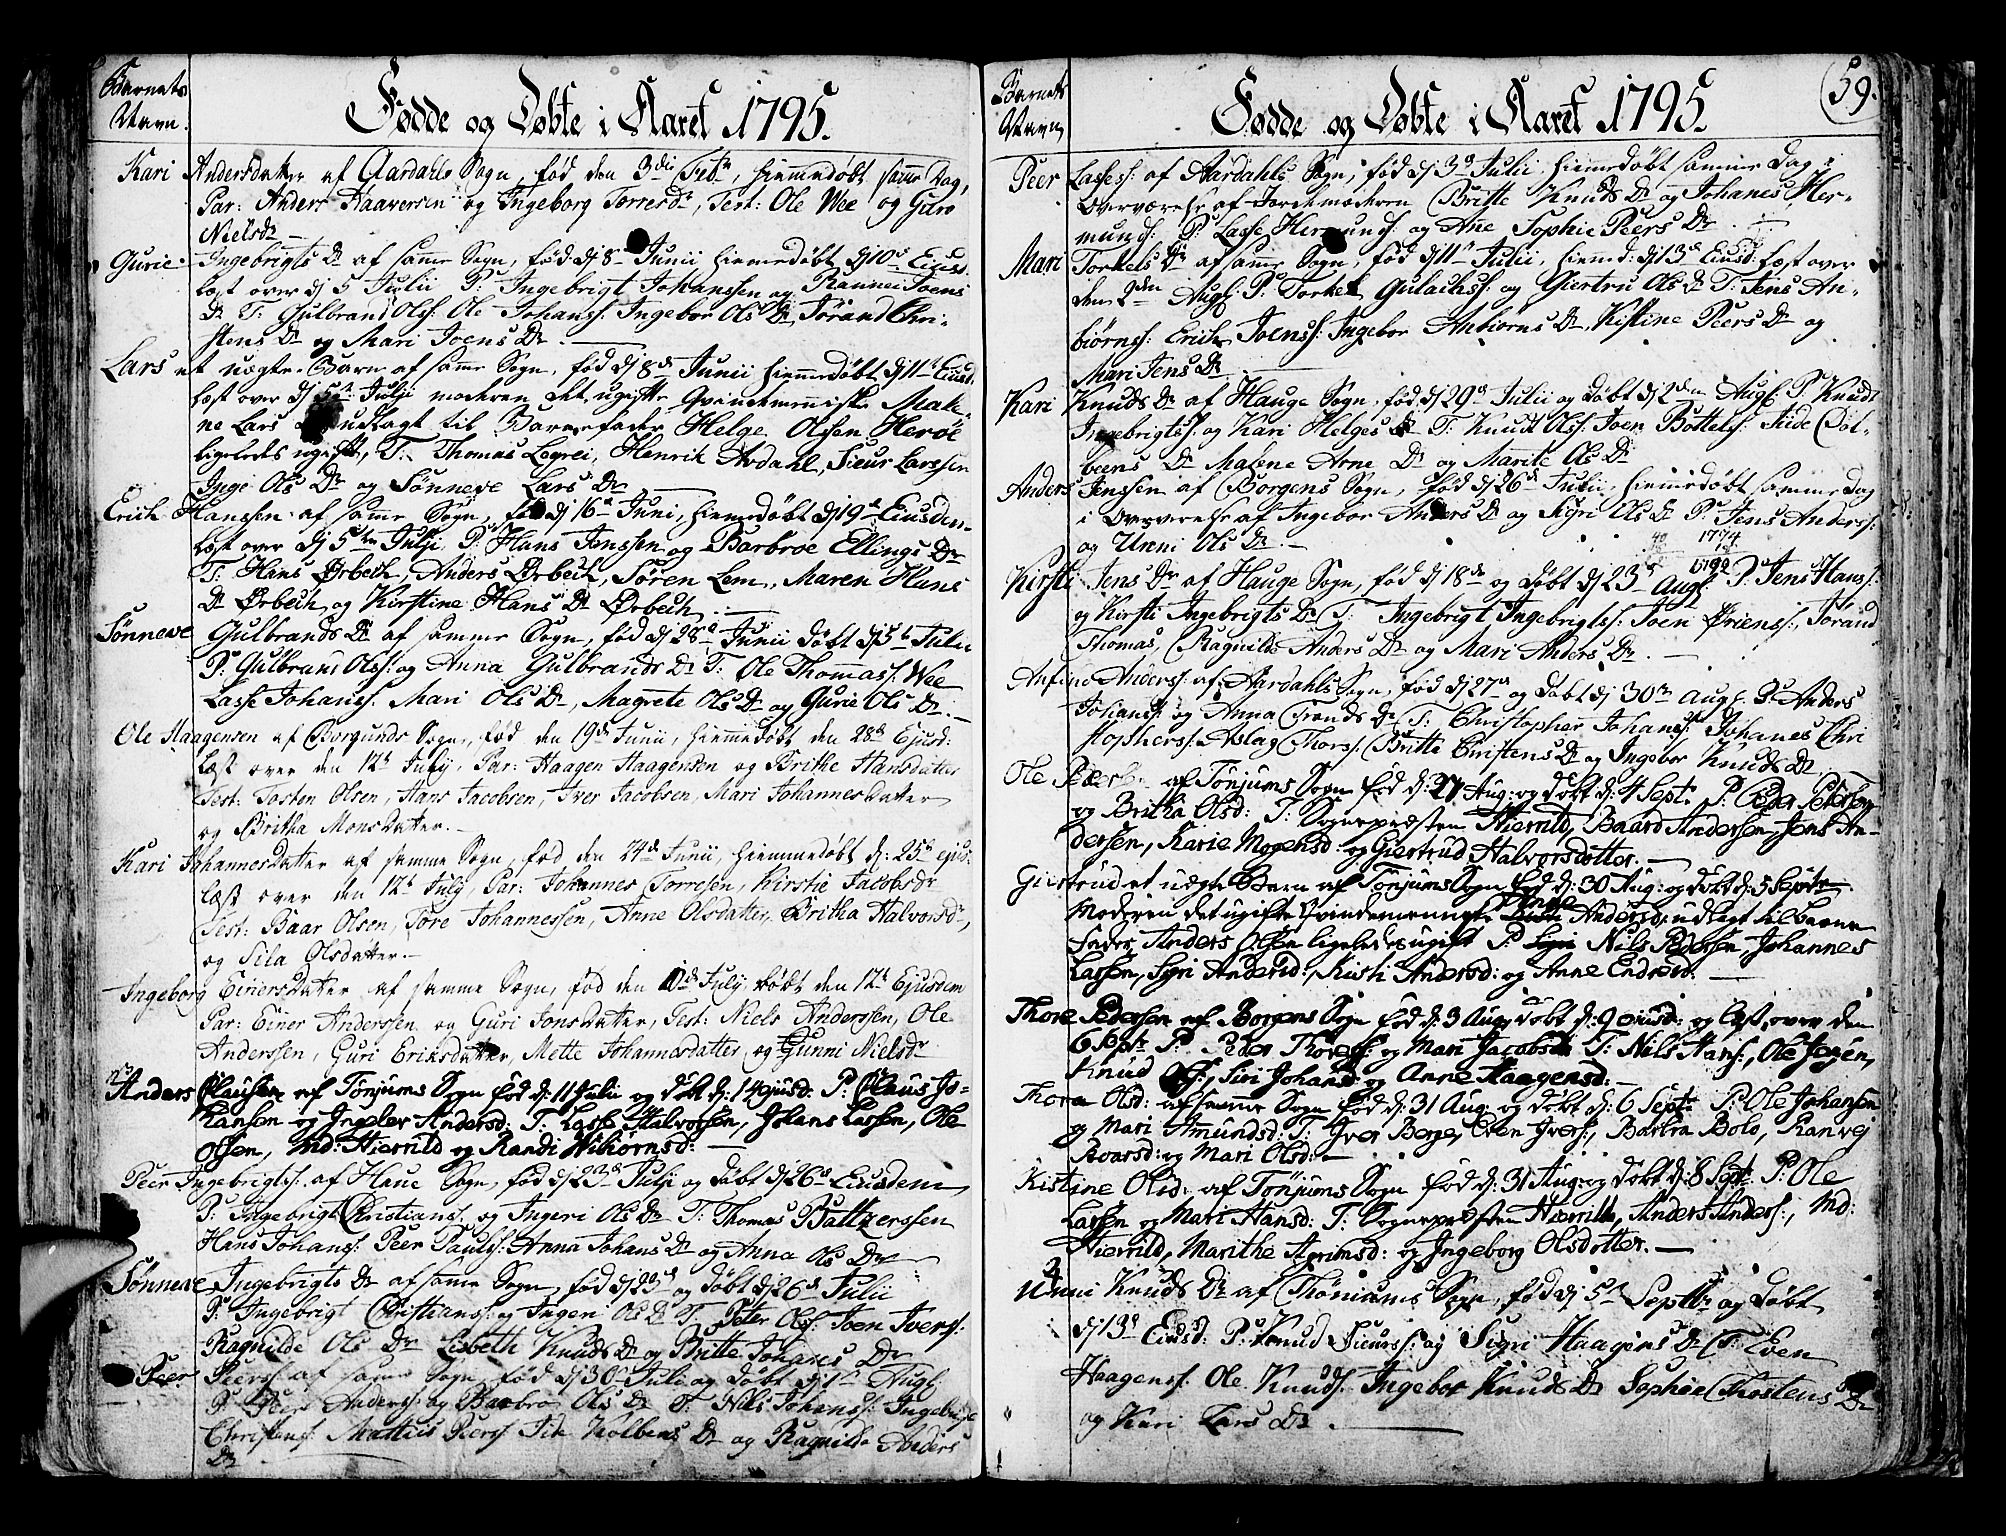 Barnets
Navn.
Fødde og Døbte i Aaret 1795.
Kari Andersdatter af Aardahls Sogn, fød den 3die Febr, hiemmedøbt samme Dag,
Par: Anders Haaversen og Ingeborg Torresdr, Test: Ole Wee og Guro
Nielsdr
Gurie Ingebrigts Dr af samme Sogn, fød dj 8de Junii hiemmedøbt dj 10de Eiusd:
læst over dj 5 Julii P: Ingebrigt Johanssen og Rannei Joens
Dr T: Gulbrand Olss: Ole Johanss: Ingebor Ols Dr Jørand Chri-
stens Dr og Mari Joens Dr
Lars et uægte Barn af samme Sogn, fød dj 8de Junii hiemmedøbt dj 11te Eiusd:
læst over dj 5te Julii moderen det ugifte Qvindemenniske Male-
ne Lars udlagt til Barnefader Helge Olssen Herøe
ligeledes ugift, T: Thomas Legrei, Henrik Ardahl, Sieur Larssen
Inge Ols Dr og Sønneve Lars Dr
Erich Hanssen af samme Sogn, fød dj 16de Juni, hiemmedøbt dj 19de Eiusdem
læst over dj 5te Julii P: Hans Janssen og Barbroe Ellings Dr
T: Hans Ørbech, Anders Ørbech, Søren Lem, Maren Hans
Dr Ørbech og Kirstine Hans Dr Ørbech
Sønneve Gulbrands Dr af samme Sogn, fød dj 28de Junii døbt dj 5te Julii
P: Gulbrand Olss: og Anna Gulbrands Dr T: Ole Thomass: Wee
Lasse Johanss: Mari Ols Dr, Magrete Ols Dr og Gurie Ols Dr.
Ole Haagensen af Borgunds Sogn, fød den 19de Junii, hiemmedøbt den 28de Ejusd:
læst over den 12te July, Par: Haagen Haagensen og Brithe Hansdatter
Test: Tosten Olsen, Hans Jacobsen, Iver Jacobsen, Mari Johannesdatter
og Britha Monsdatter.
Kari Johannesdatter af samme Sogn, fød den 24de Junii, hiemmedøbt d: 25de ejus:
læst over den 12te July, Par: Johannes Torresen, Kirstie Jacobsdr
Test: Baar Olsen, Tore Johannessen, Anne Olsdatter, Britha Halvorsdr,
og Sila Olsdatter.
Ingeborg Einersdatter af samme Sogn, fød den July, døbt den 12te Ejusdem
Par: Einer Anderssen og Guri Jonsdatter, Test: Niels Anderssen, Ole
Anderssen, Guri Eriksdatter, Mette Johannesdatter og Gunni Nielsdr
Anders Clausen af Tønjums Sogn fød d: 11 Julii og døbt d: 14 ejusd: P: Claus Jo-
hansen og Ingebor Andersd: T: Lasse Halvorsen, Johans Lassen, Ole
Olsen, Md: Hierrild og Randi
Peer Ingebrigtss: af Haue Sogn, fød dj 23de Julii og døbt dj 26de Eiusdem
P: Ingebrigt Christianss: og Ingeri Ols Dr T: Thomas Baltzerssen
Hans Johanss: Peer Paulss: Anna Johans Dr og Anna Ols Dr
Sønneve Ingebrigts Dr af samme Sogn, fød dj 23de og døbt dj 26de Julii
P: Ingebrigt Christianss: og Ingeri Ols Dr T: Peter Olss: Joen Iverss:
Ragnilde Ols Dr Lisbeth Knuds Dr og Britte Johans Dr
Peer Peerss: af samme Sogn fød dj 30 Juli og døbt dj 1te Augl:
P: Peer Anderss: og Barbro Ols Dr T: Nils Johanss: Ingebrigt
Christenss: Mattias Peerss: Kolbens Dr og Ragnilde Anders
Dr
Barnets
Navn
Fødde og Døbte i Aaret 1795.
59.
Peer Lasses: af Aardahls Sogn, fød dj 3de Julii hiemmedøbt samme dag i
Overværelse af Jordemoderen Britte Knuds Dr og Johanes Her-
munds: P: Lasse Hermunds: og Ane Sophie Peers Dr
Mari Torkels Dr af samme Sogn, fød dj 11te Julii, hiemd: dj 13de Eiusd: læst over
den 2den Augl: P: Torkel Gulachss: og Giertru Ols Dr T: Jens An-
biørnss: Erich Joenss: Ingebor Anbiørns Dr, Kistine Peers Dr og
Mari Jens Dr
Kari Knuds Dr af Hauge Sogn, fød dj 29de Julii og døbt dj 2den Augl: P: Knud
Ingebrigtss: og Kari Helges Dr T: Knut Olss: Joen Bottelss:
Malene Arne Dr og Marite Ols Dr
Anders Jenssen af Borgens Sogn, fød dj 26de Julii, hiemmedøbt samme dag
i Overværelse af Ingebor Anders Dr og Sigri Ols Dr P: Jens Anderss:
og Unni Ols Dr.
40 1774
18
1792
Kirsti Jens Dr af Hauge Sogn, fød dj 18de og døbt dj 23de Augl: P: Jens Hanss:
og Kirsti Ingebrigts Dr T: Ingebrigt Ingebrigtss: Joen Ørienss: Jorand
Thomas, Ragnilde Anders Dr og Mari Anders Dr.
Anfind Anderss: af Aardahls Sogn, fød dj 27de og døbt dj 30te Augl: P: Anders
Johanss: og Anna Tronds Dr T: Christopher Johanss: Johanes Chri
stopherss: Aslag Thorss: Britte Christens Dr og Ingebor Knuds Dr
Ole af Tønjums Sogn fød d: 27 Aug: og døbt d: 4 Septr P: Peder Petersen
og Britha Olsd: T: Sognepræsten Hierrild, Baard Andersen, Jens An-
dersen, Karie Mogensd: og Giertrud Halvorsdotter.
Giertrud et uægte Barn af Tønjums Sogn fød d: 30 Aug: og døbt d: 5 Septr
Moderen det ugifte Qvindemenneske Andersd, udlagt til Barne
Fader Anders Olsen ligeledes ugift P: Nils Pedersen, Johannes
Lassen, Syri Andersd:, Kisti Andersd: og Anne Endresd.
Thore Pedersen af Borgens Sogn fød d: 3 Aug døbt d: 9 ejusd: og læst over den
6 Septr P: Peder Thores: og Mari Jacobsd: T: Nils Hans:, Ole Joen,
Knud Ols:, Siri Johansd og Anne Haagensd:
Thora Olsd: af samme Sogn fød d: 31 Aug og døbt d: 6 Septr P: Ole Johansen
og Mari Amundsd: T: Iver Berge, Even Ivers:, Barbra Bolo, Ranvej
Roarsd: og Mari Olsd:
Kistine Olsd: af Tønjums Sogn fød d: 31 Aug: og døbt d: 8 Septr P: Ole
Lassen og Mari Hansd: T: Sognepræsten Hierrild, Anders Anders:, Md:
Hierrild, Marithe Asrimsd: og Ingeborg Olsdotter.
Unni Knuds Dr af Thøniums Sogn, fød dj 5te Septbr og døbt
dj 13de Eiusd: P: Knud Sieurss: og Sigri Haagens Dr T: Even
Haagenss: Ole Knuds: Ingebor Knuds Dr Sophie Thostens Dr
og Kari Lars Dr.